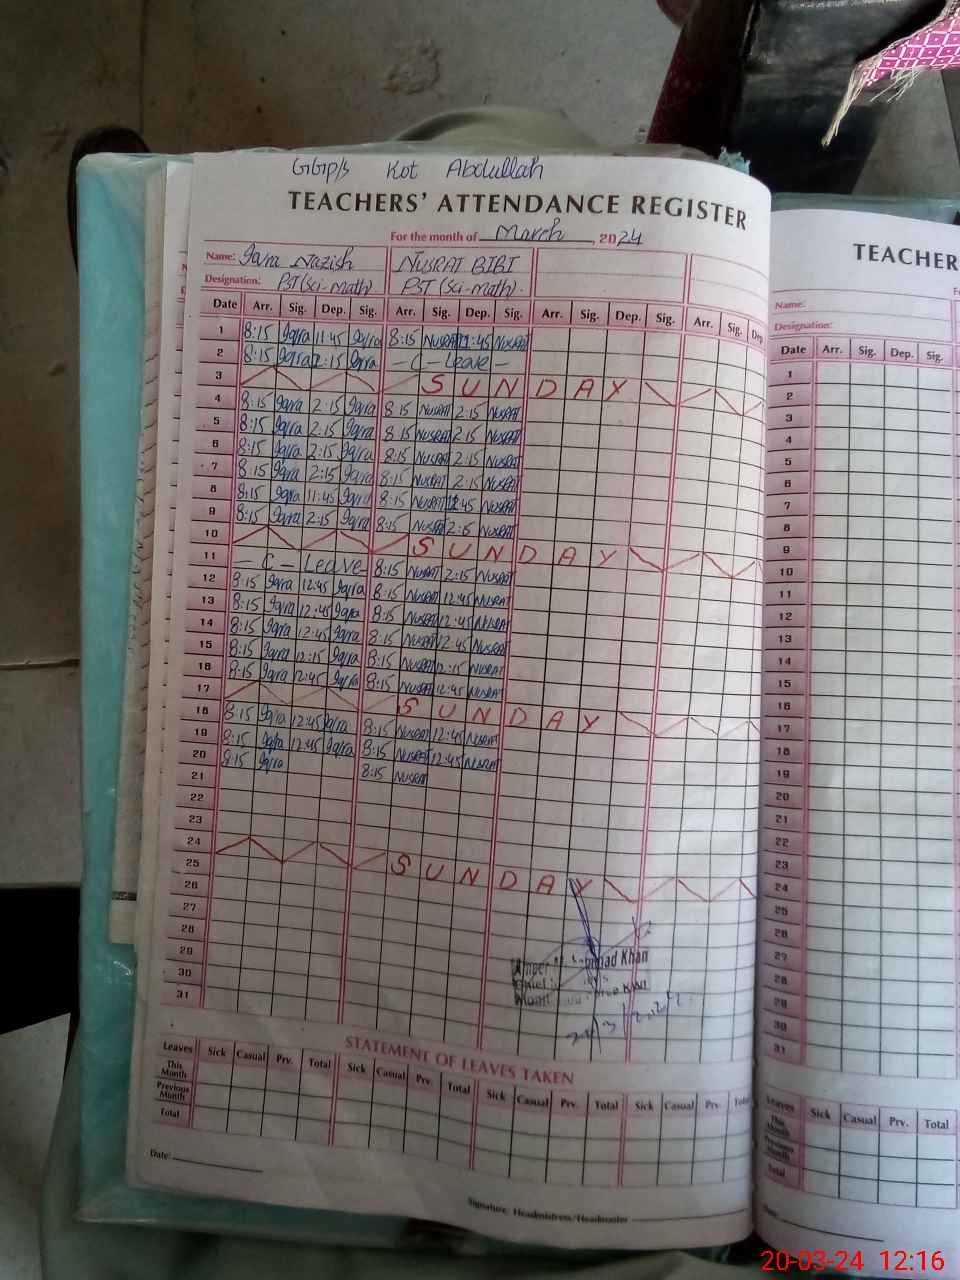 GGP/S Kot Abdullah
TEACHERS' ATTENDANCE REGISTER
For the month of March, 2024
Name: Iqra Nazish NUSRAT BIBI
Designation: PST (Sci-math) PST (Sci-math).
Date Arr. Sig. Dep. Sig. Arr. Sig. Dep. Sig. Arr. Sig. Dep. Sig. Arr. Sig. Dep
1 8:15 Iqra 11:45 Iqra 8:15 NUSRAT 11:45 NUSRAT
2 8:15 Iqra 2:15 Iqra - C - Leave -
3 SUNDAY
4 8:15 Iqra 2:15 Iqra 8:15 NUSRAT 2:15 NUSRAT
5 8:15 Iqra 2:15 Iqra 8:15 NUSRAT 2:15 NUSRAT
6 8:15 Iqra 2:15 Iqra 8:15 NUSRAT 2:15 NUSRAT
7 8:15 Iqra 2:15 Iqra 8:15 NUSRAT 2:15 NUSRAT
8 8:15 Iqra 11:45 Iqra 8:15 NUSRAT 11:45 NUSRAT
9 8:15 Iqra 2:15 Iqra 8:15 NUSRAT 2:15 NUSRAT
10 SUNDAY
11 - C - Leave 8:15 NUSRAT 2:15 NUSRAT
12 8:15 Iqra 12:45 Iqra 8:15 NUSRAT 12:45 NUSRAT
13 8:15 Iqra 12:45 Iqra 8:15 NUSRAT 12:45 NUSRAT
14 8:15 Iqra 12:45 Iqra 8:15 NUSRAT 12:45 NUSRAT
15 8:15 Iqra 12:15 Iqra 8:15 NUSRAT 12:15 NUSRAT
16 8:15 Iqra 12:45 Iqra 8:15 NUSRAT 12:45 NUSRAT
17 SUNDAY
18 8:15 Iqra 12:45 Iqra 8:15 NUSRAT 12:45 NUSRAT
19 8:15 Iqra 12:45 Iqra 8:15 NUSRAT 12:45 NUSRAT
20 8:15 Iqra 8:15 NUSRAT
21
22
23
24 SUNDAY
25
26
27
28
29
30
31
Khan
STATEMENT OF LEAVES TAKEN
Leaves Sick Casual Prv. Total Sick Casual Prv. Total Sick Casual Prv. Total Sick Casual Prv. Total
This Month
Previous Month
Total
Date:
Signature: Headmistress/Headmaster
TEACHER
Name:
Designation:
Date Arr. Sig. Dep. Sig.
1
2
3
4
5
6
7
8
9
10
11
12
13
14
15
16
17
18
19
20
21
22
23
24
25
26
27
28
29
30
31
Leaves Sick Casual Prv. Total
This Month
Previous Month
Total
20-03-24 12:16